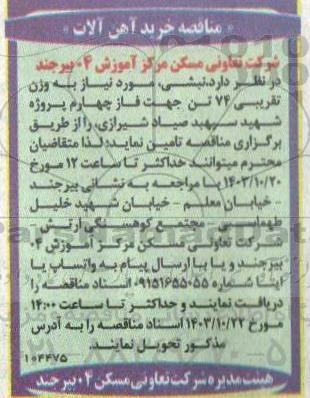 « مناقصه خرید آهن آلات »
شرکت تعاونی مسکن مرکز آموزش ۰۴ بیرجند
در نظر دارد،نبشی، مورد نیاز به وزن
تقریبی ۷۴ تن جهت فاز چهارم پروژه
شهید سپهبد صیاد شیرازی، را از طریق
برگزاری مناقصه تامین نماید؛ لذا متقاضیان
محترم میتوانند حداکثر تا ساعت ۱۲ مورخ
۱۴۰۳/۱۰/۲۰ با مراجعه به نشانی بیرجند
- خیابان معلم - خیابان شهید خلیل
طهماسبی مجتمع کوهسنگی ارتش
شرکت تعاونی مسکن مرکز آموزش ۰۴
بیرجند و یا با ارسال پیام به واتساپ یا
ایتا شماره ۰۹۱۵۱۶۵۵۰۵۵ اسناد مناقصه را
دریافت نمایند و حداکثر تا ساعت ۱۴:۰۰
مورخ ۱۴۰۳/۱۰/۲۳ اسناد مناقصه را به آدرس
مذکور تحویل نمایند.
۱۰۴۴۷۵
هیئت مدیره شرکت تعاونی مسکن ۰۴ بیرجند